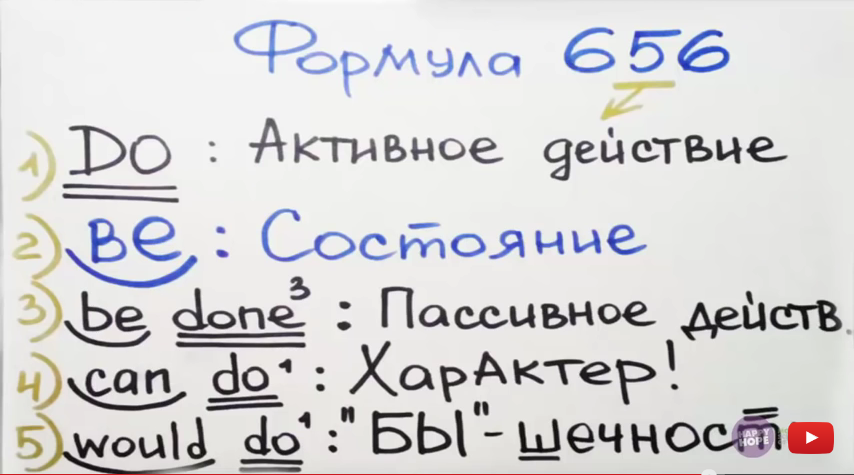 Формула 656
1) DO : Активное действие
2) Be : Состояние
3) be done³ : Пассивное действ.
4) can do¹ : Характер!
5) would do¹ : "БЫ"-шечност
HAPPY HOPE